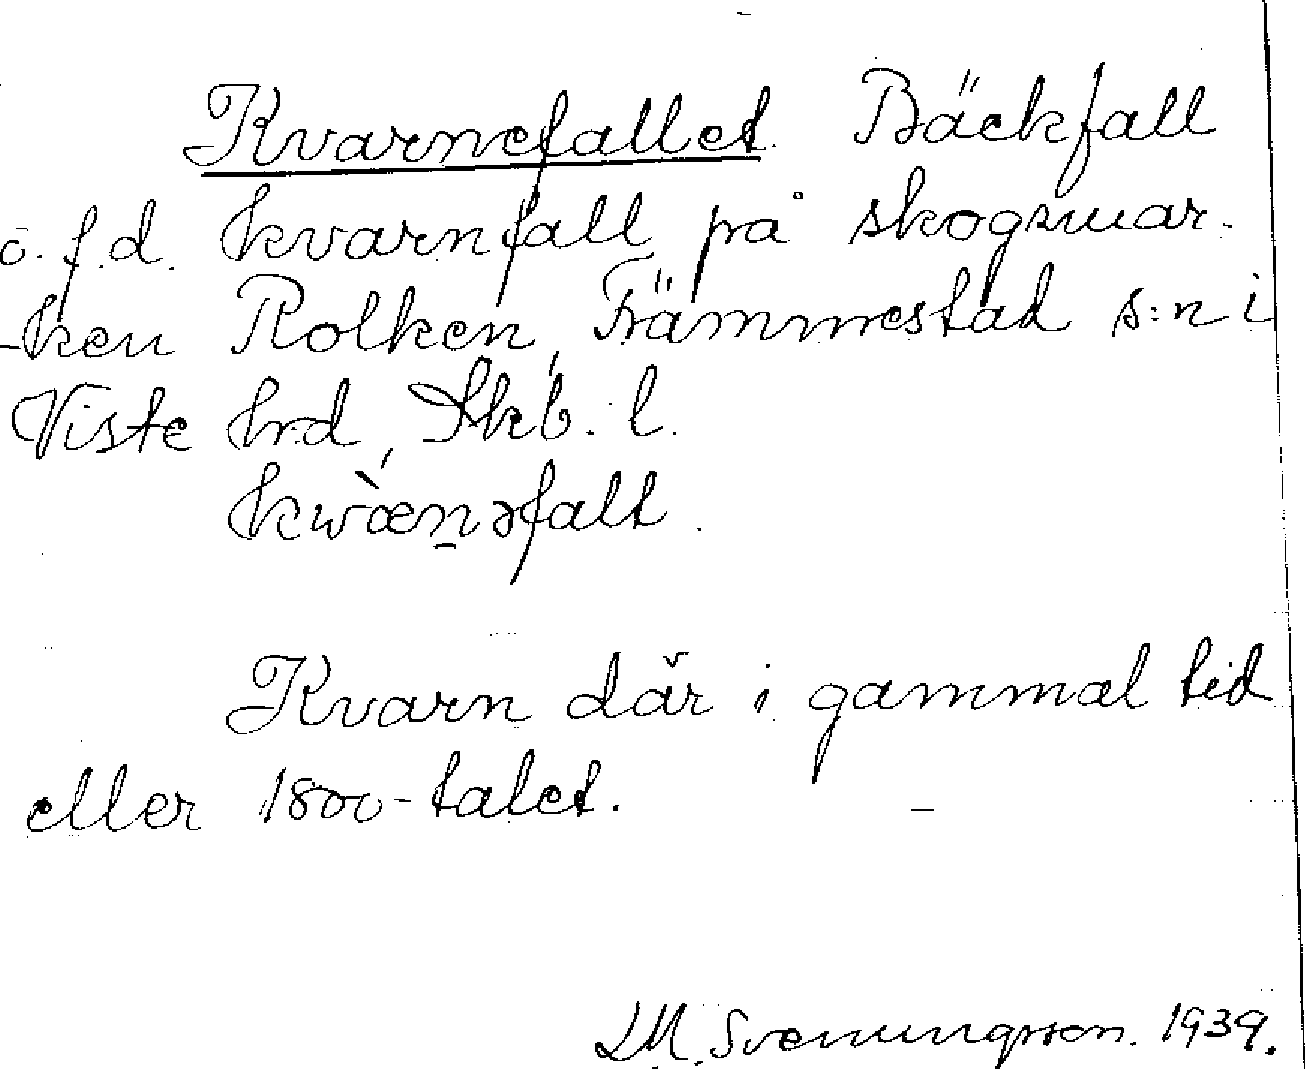 Kvarnefallet. Bäckfall
o. f.d. kvarnfall på skogsmar-
-ken Rolken, Främmestad s:n i
Viste hrd, Skb. l.
kwæ̀n̠əfalt.
Kvarn där i gammal tid
eller 1800-talet.
LM. Svenungsson. 1939.